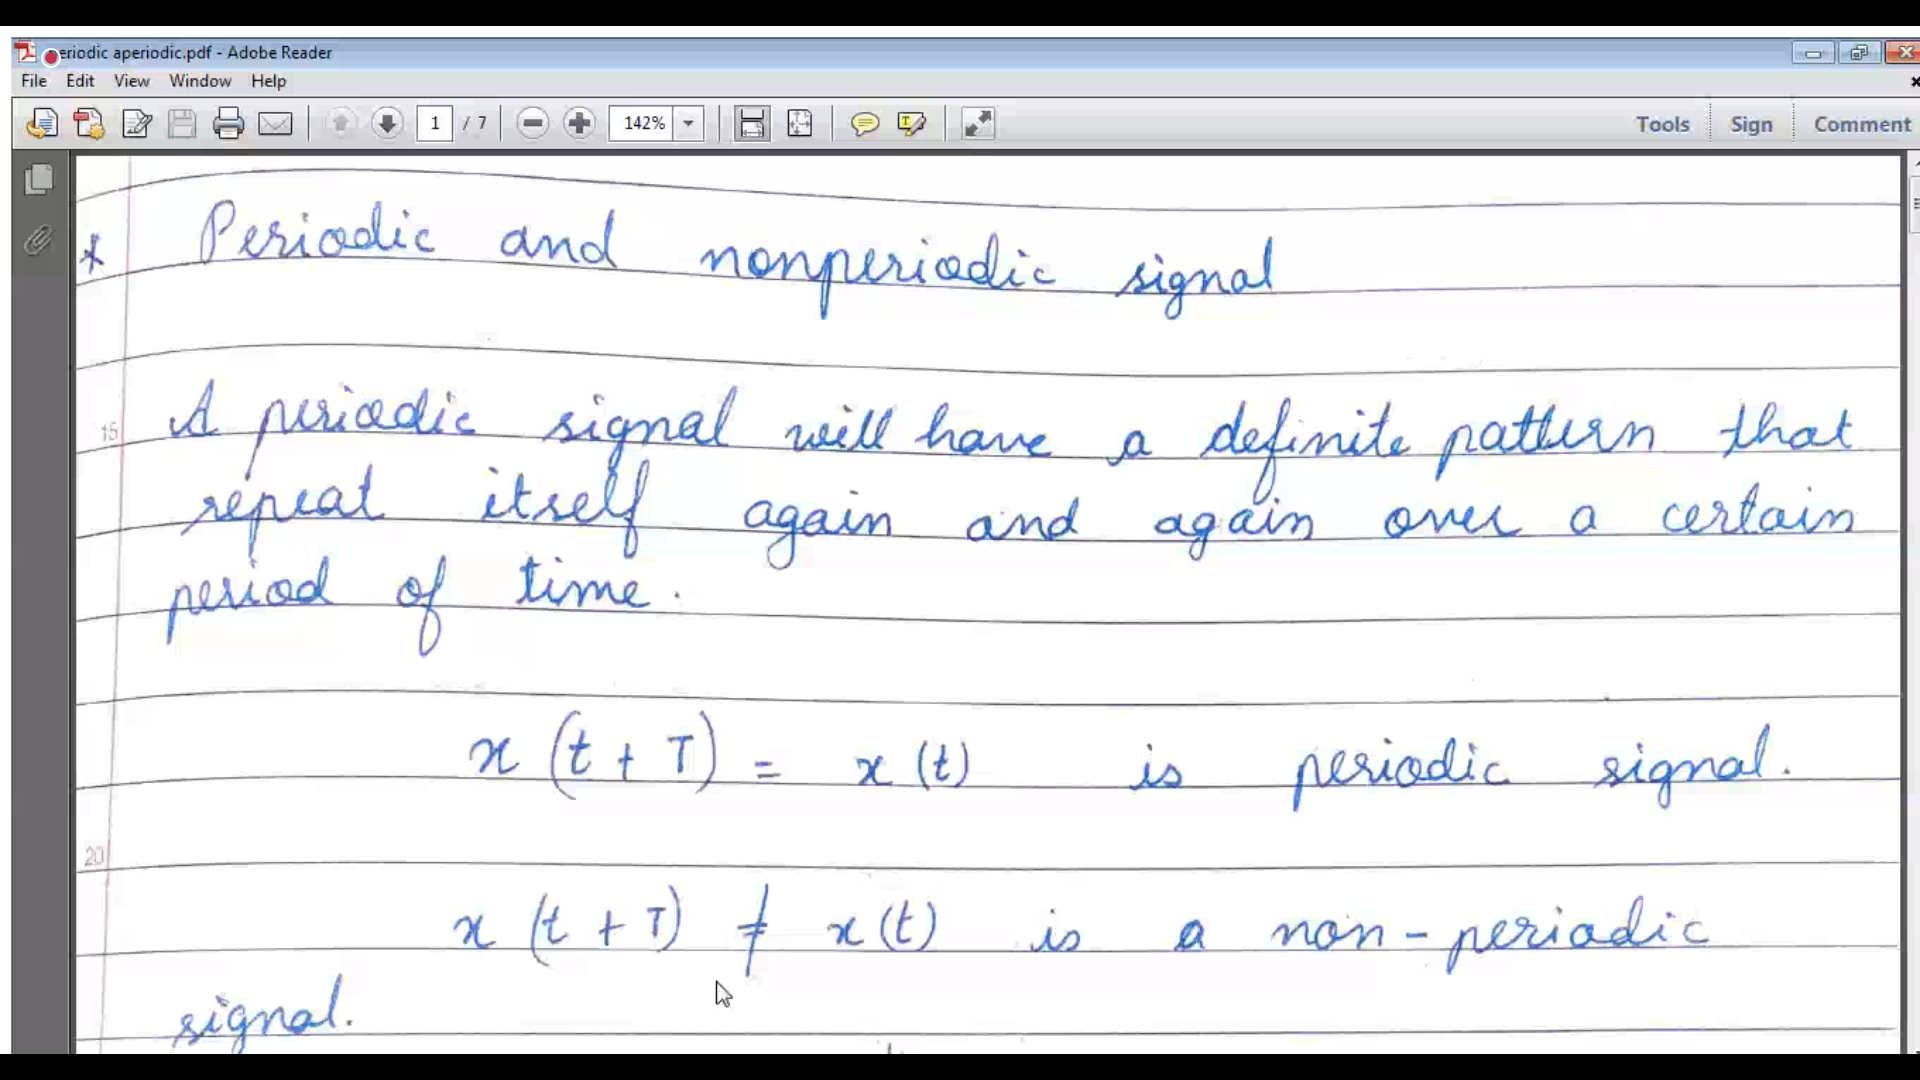 periodic aperiodic.pdf - Adobe Reader
File Edit View Window Help
1 / 7 142% Tools Sign Comment
* Periodic and nonperiodic signal
15 A periodic signal will have a definite pattern that
repeat itself again and again over a certain
period of time.
x (t + T) = x (t) is periodic signal.
20
x (t + T) ≠ x (t) is a non-periodic
signal.